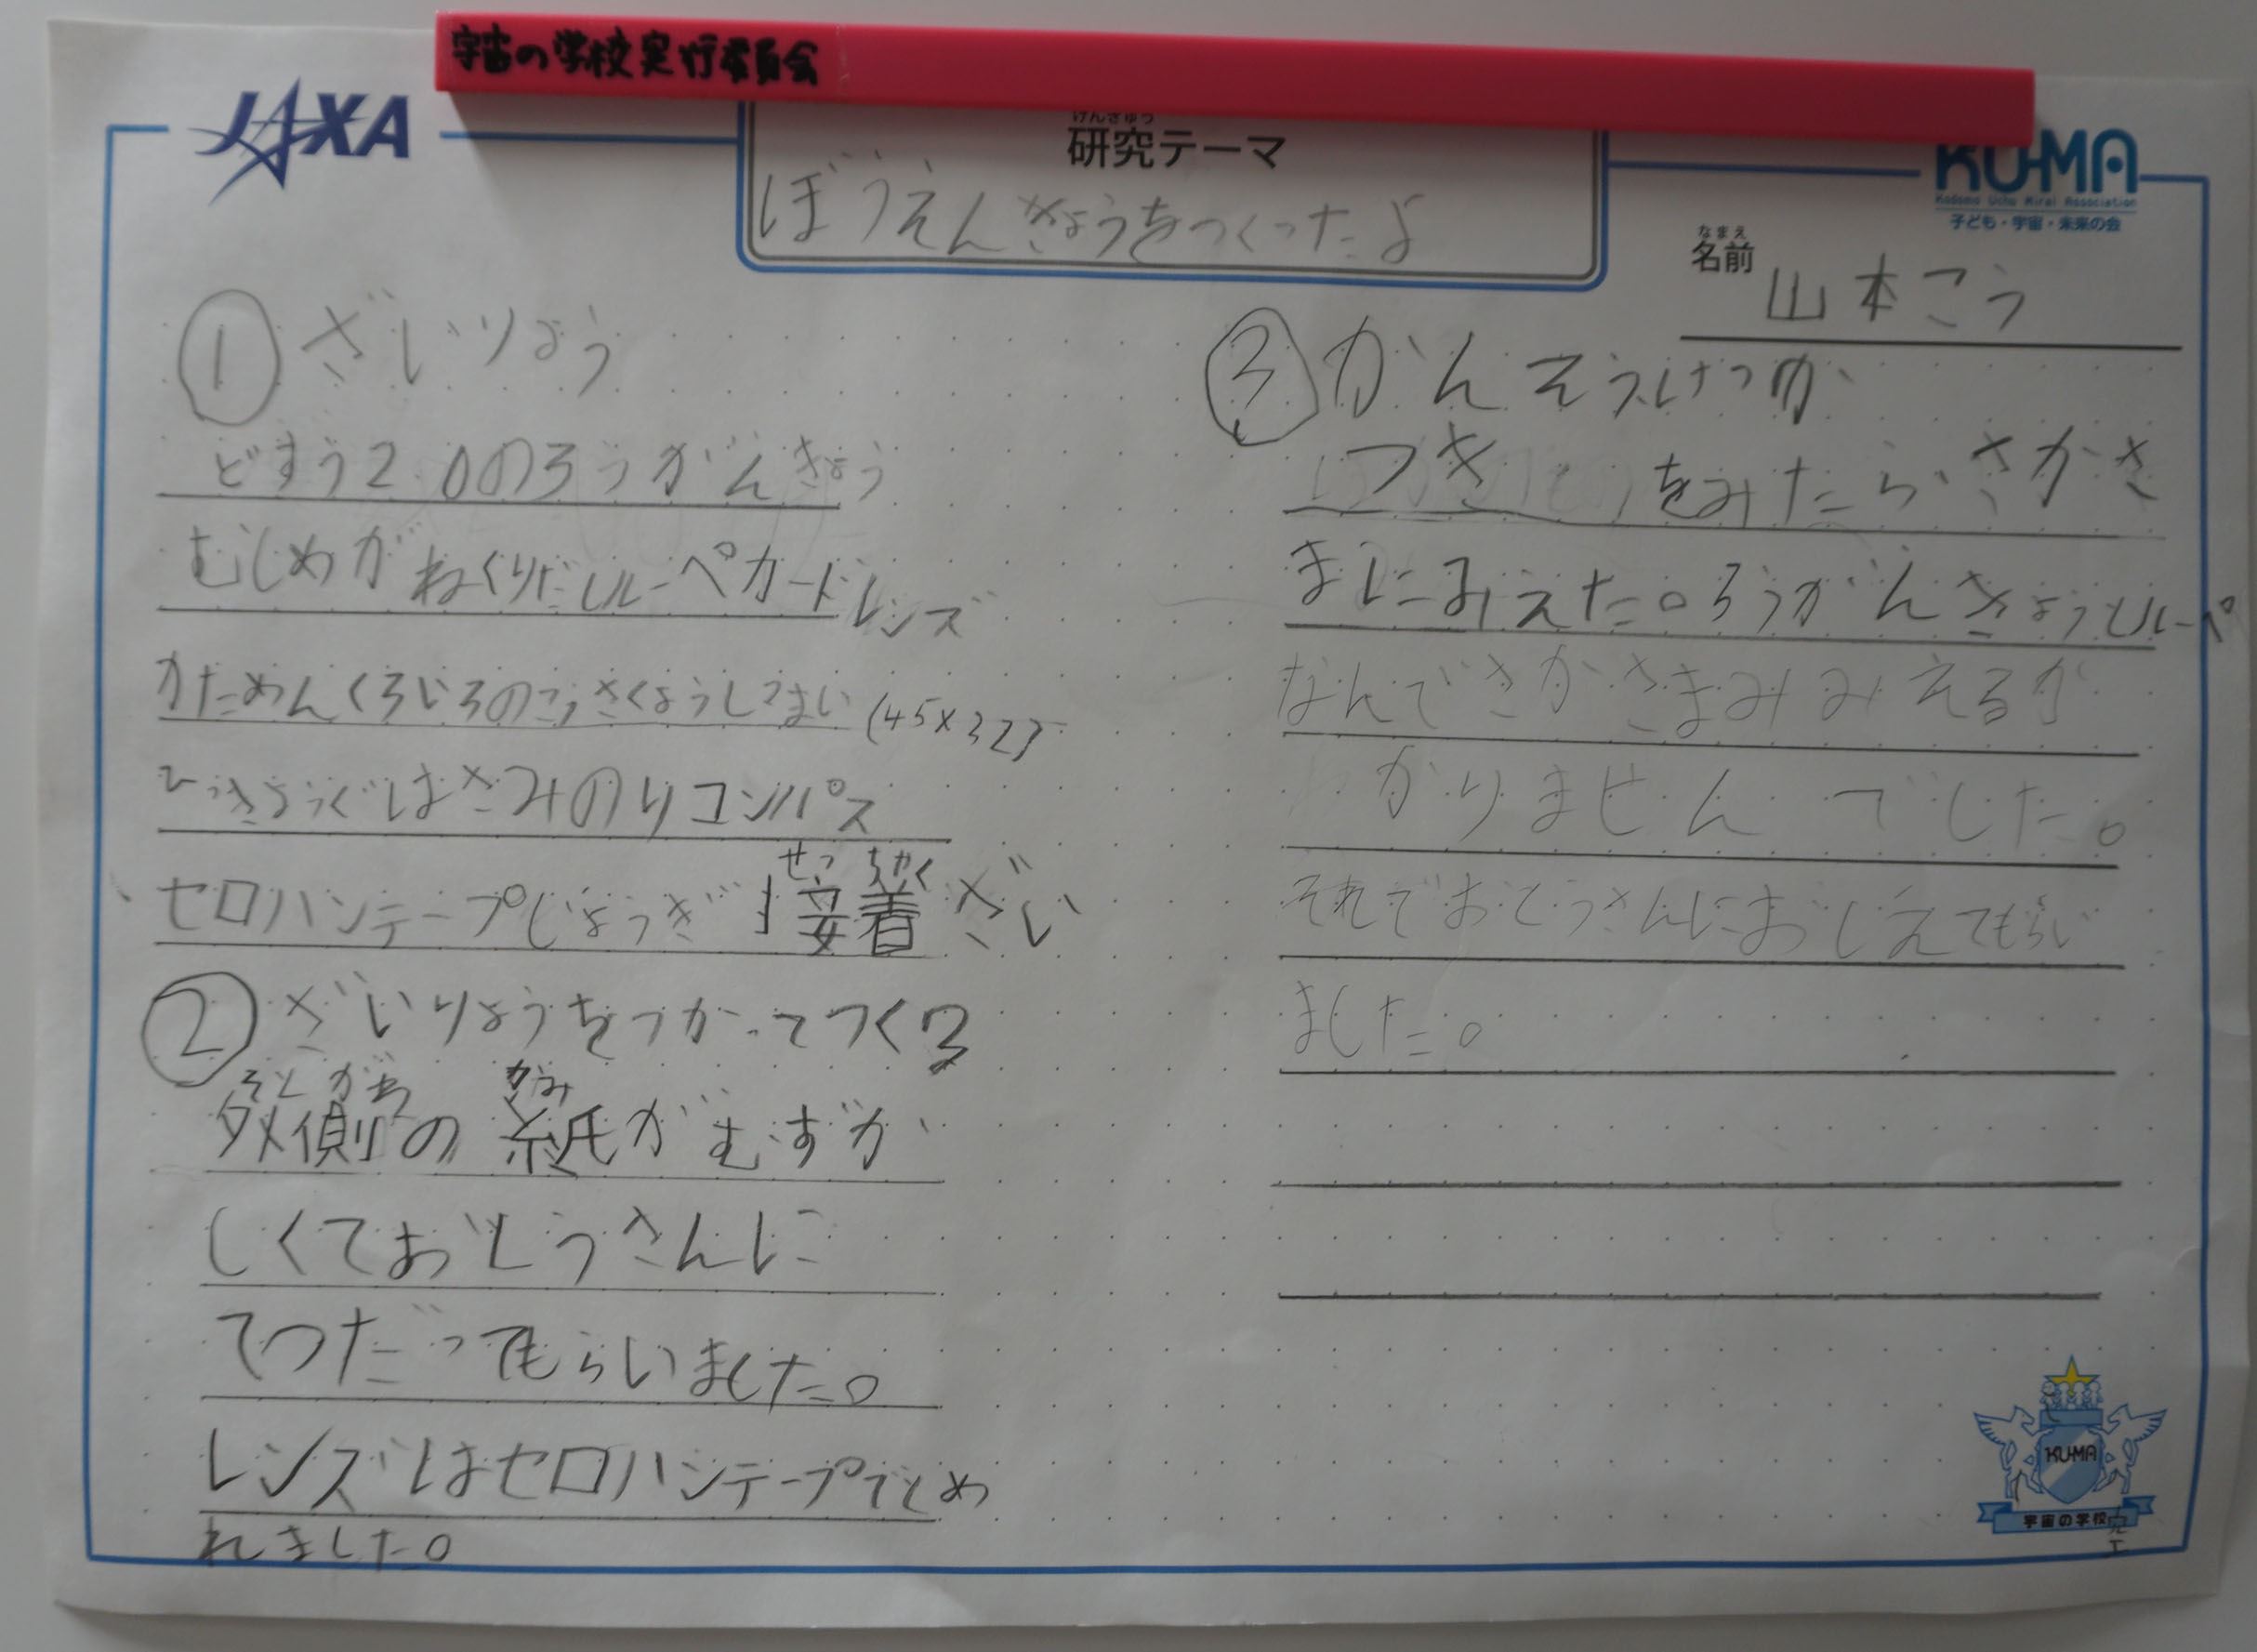 宇宙の学校実行委員会
JAXA
けんきゅう
研究テーマ
ぼうえんきょうをつくったよ
KU-MA
Kodomo Uchu Mirai Association
子ども・宇宙・未来の会
なまえ
名前 山本こう
① ざいりょう
どすう2.0のろうがんきょう
むしめがねくりだしルーペカードレンズ
かためんくろいろのこうさくようし2まい(45×32)
ひっきようぐはさみのりコンパス
せっちゃく
セロハンテープじょうぎ接着ざい
② ざいりょうをつかってつくる
そとがわ かみ
外側の紙がむずか
しくておとうさんに
てつだってもらいました。
レンズはセロハンテープでとめ
れました。
③ かんそうけっか
つきをみたらさかさ
まにみえた。ろうがんきょうとルーペ
なんでさかさまみみえるか
かりませんでした。
それでおとうさんにおしえてもらい
ました。
KU-MA
宇宙の学校